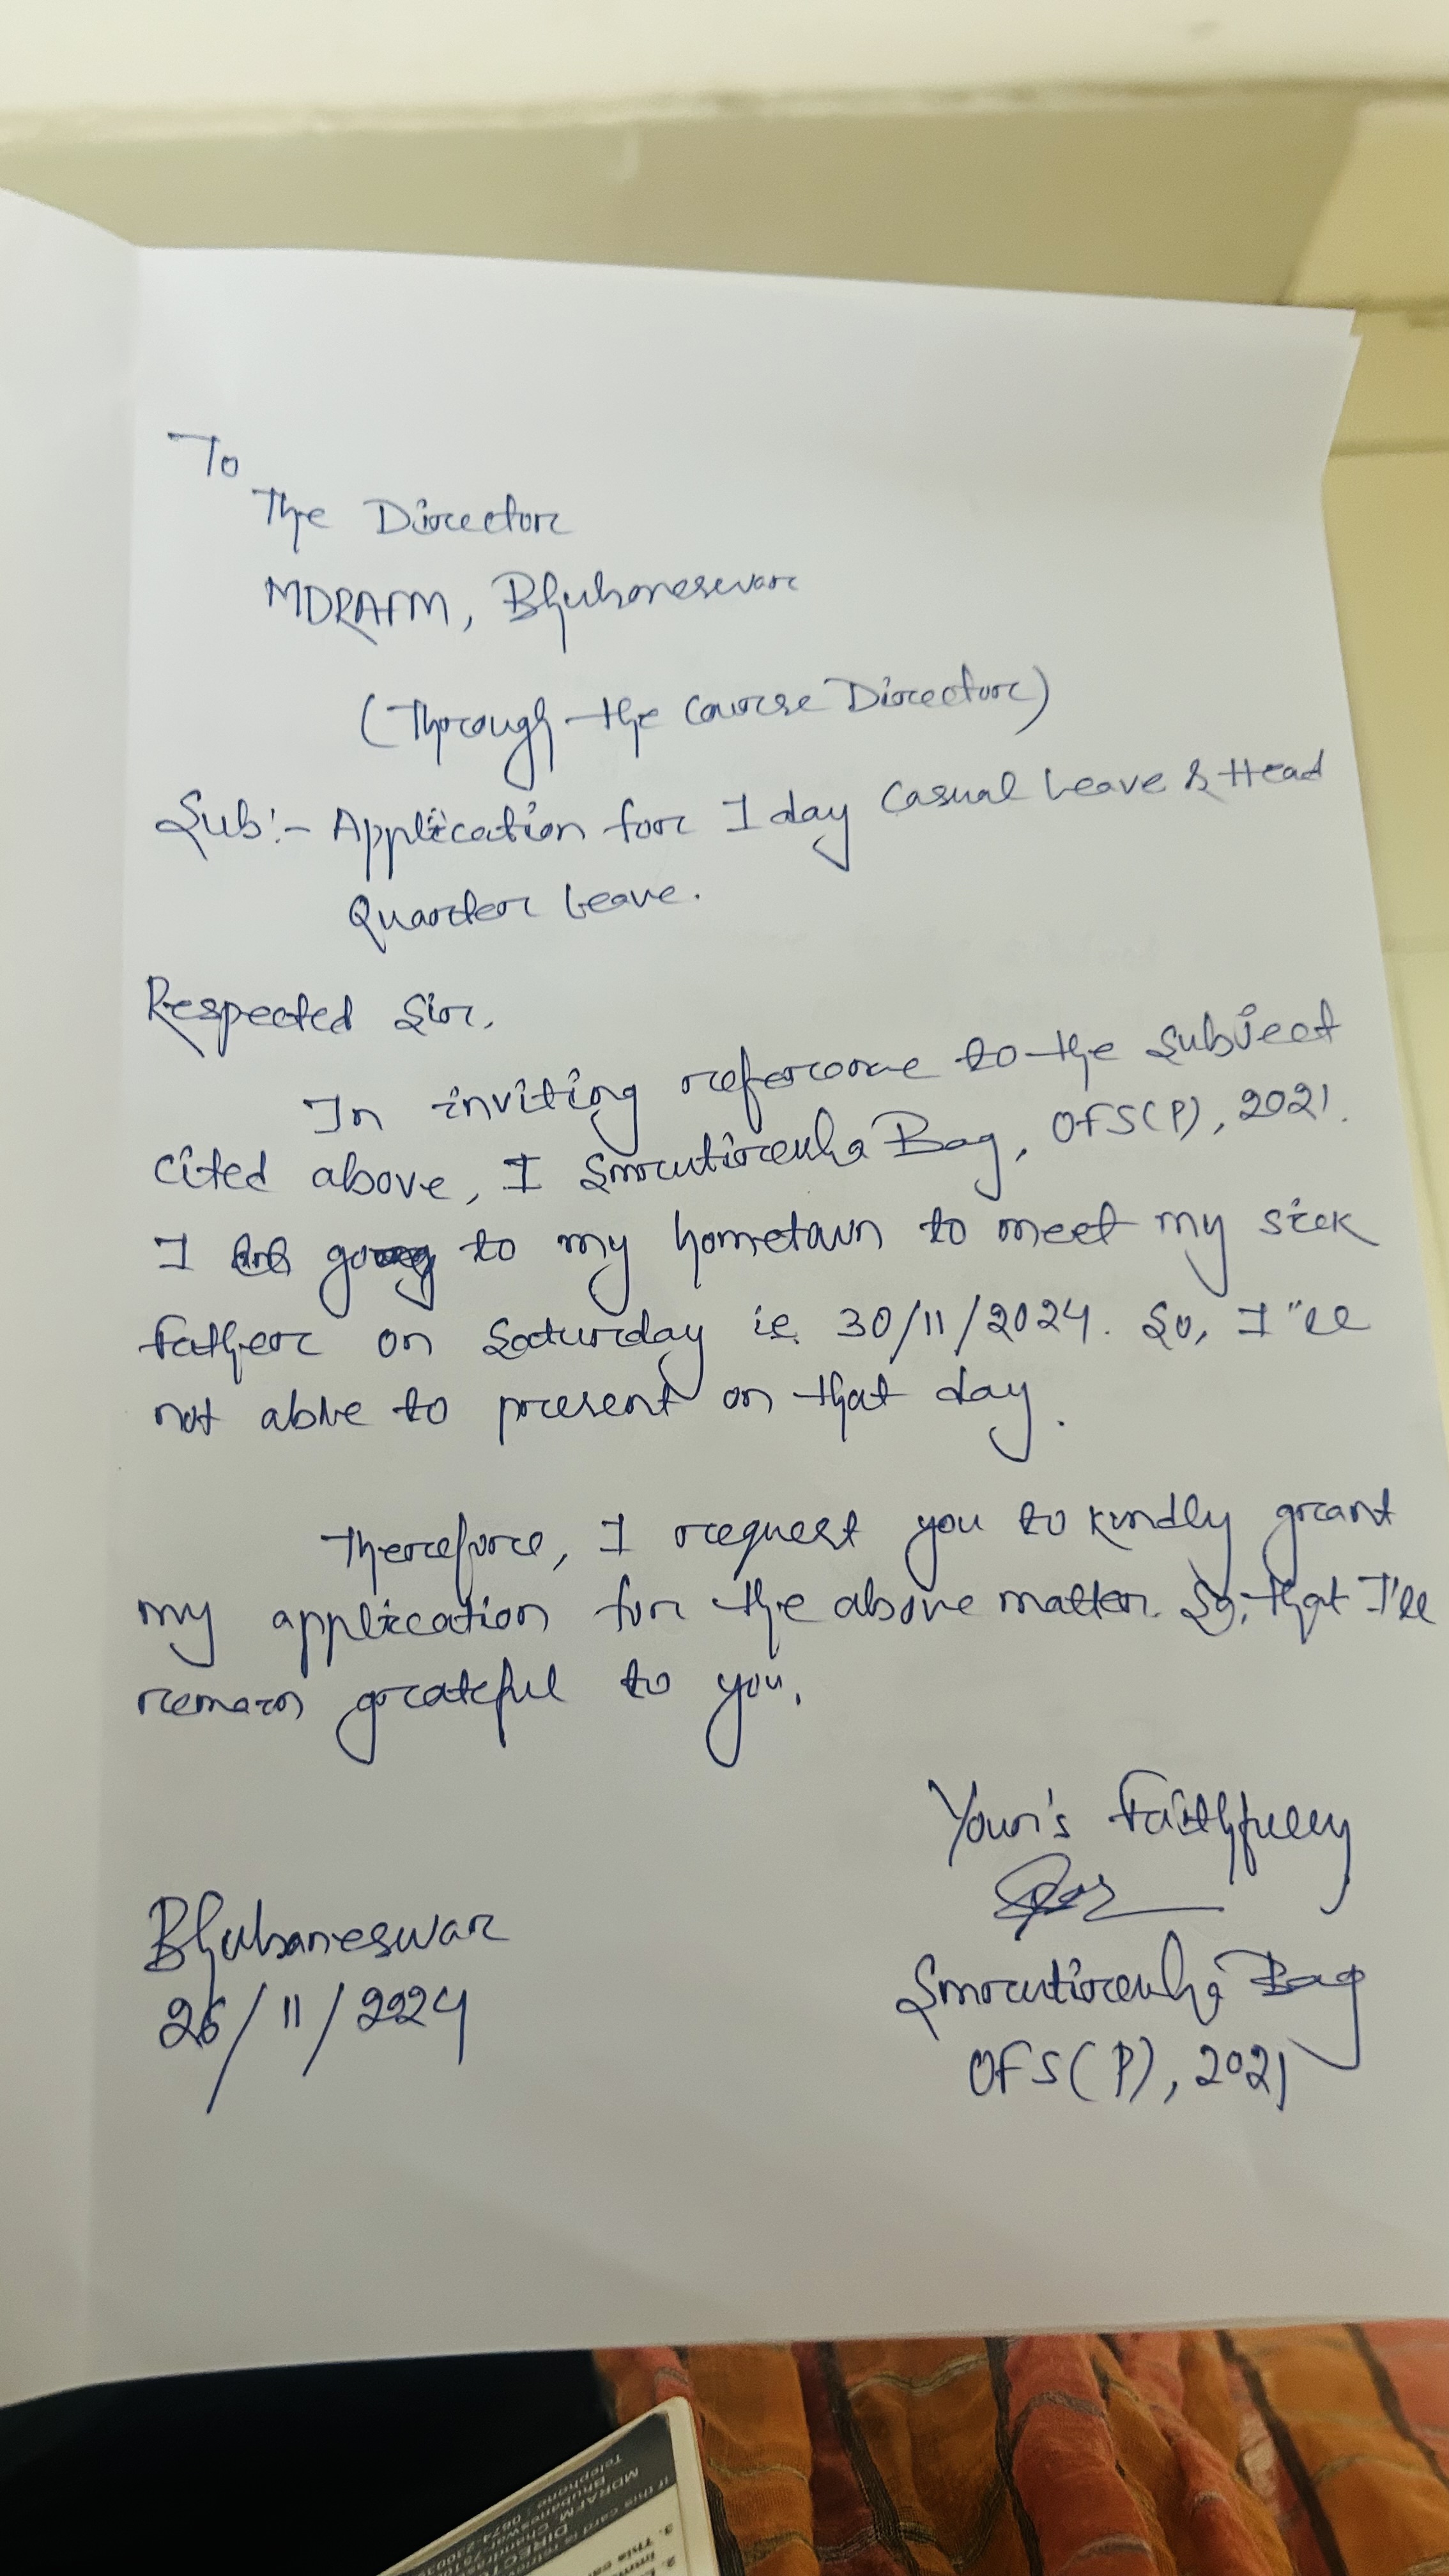 To
The Director
MDRAFM, Bhubaneswar
(Through the Course Director)
Sub:- Application for 1 day Casual Leave & Head
Quarter Leave.
Respected Sir,
In inviting reference to the subject
cited above, I Smrutirekha Bag, OFS(P), 2021.
I going to my hometown to meet my sick
father on Saturday ie. 30/11/2024. So, I'll
not able to present on that day.
Therefore, I request you to kindly grant
my application for the above matter. So, that I'll
remain grateful to you.
Your's Faithfully
Smrutirekha Bag
OFS(P), 2021
Bhubaneswar
26/11/2024
MDRAFM
Telephone